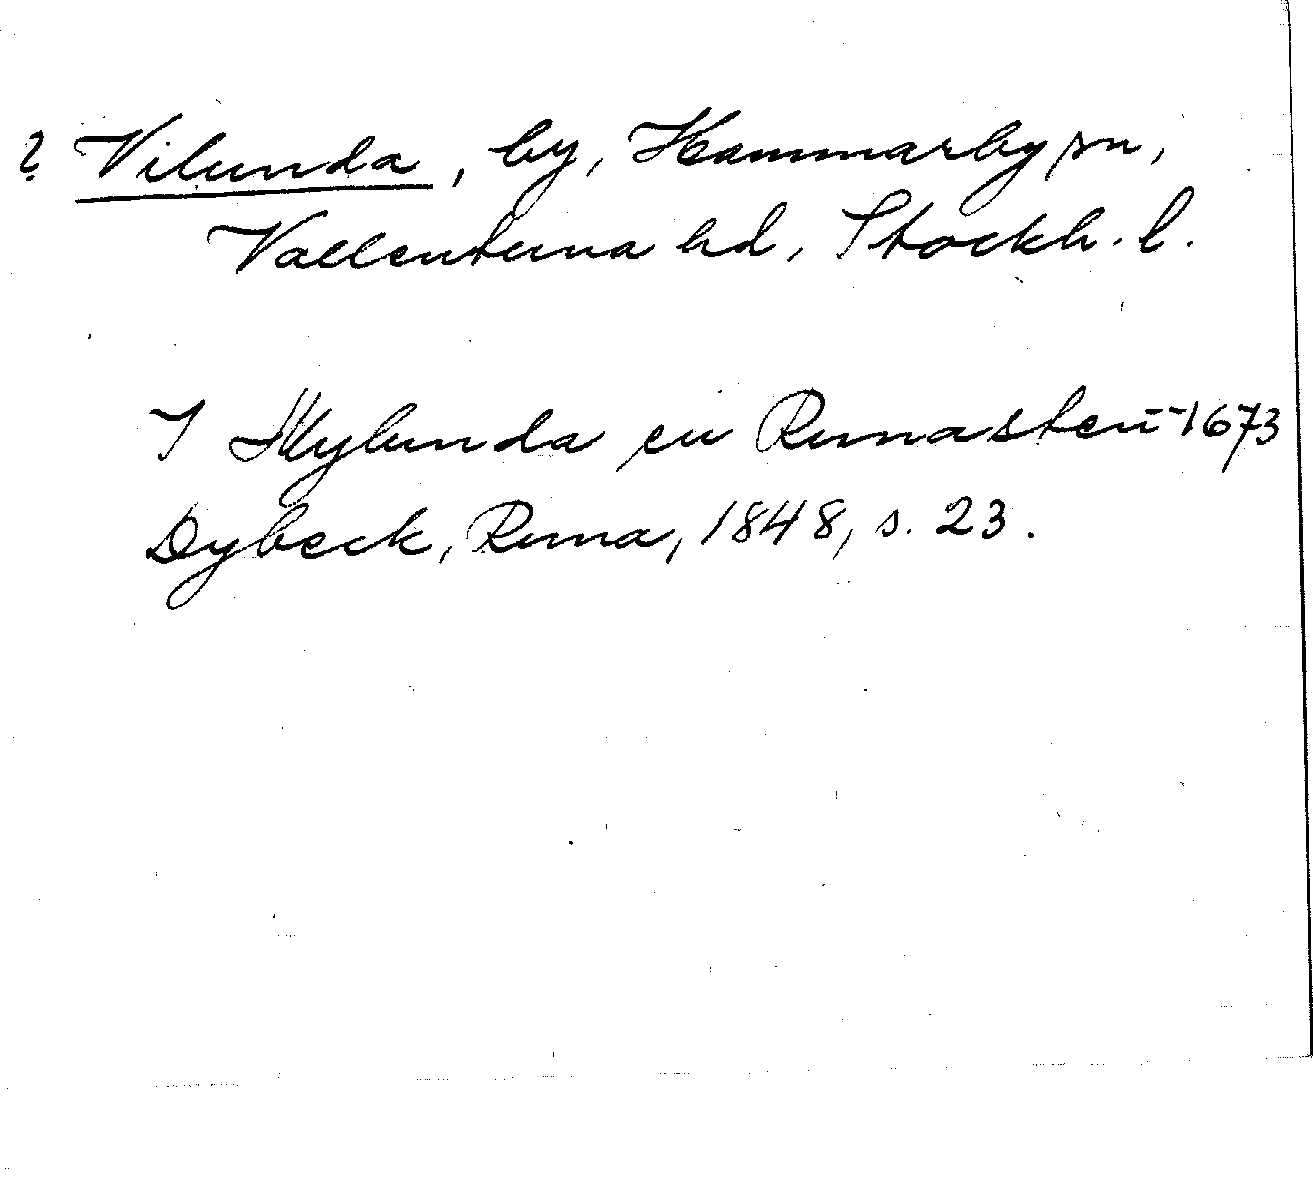 ? Vilunda, by, Hammarby sn,
Vallentuna hd, Stockh. l.
I Wylunda en Runasten -- 1673
Dybeck, Runa, 1848, s. 23.